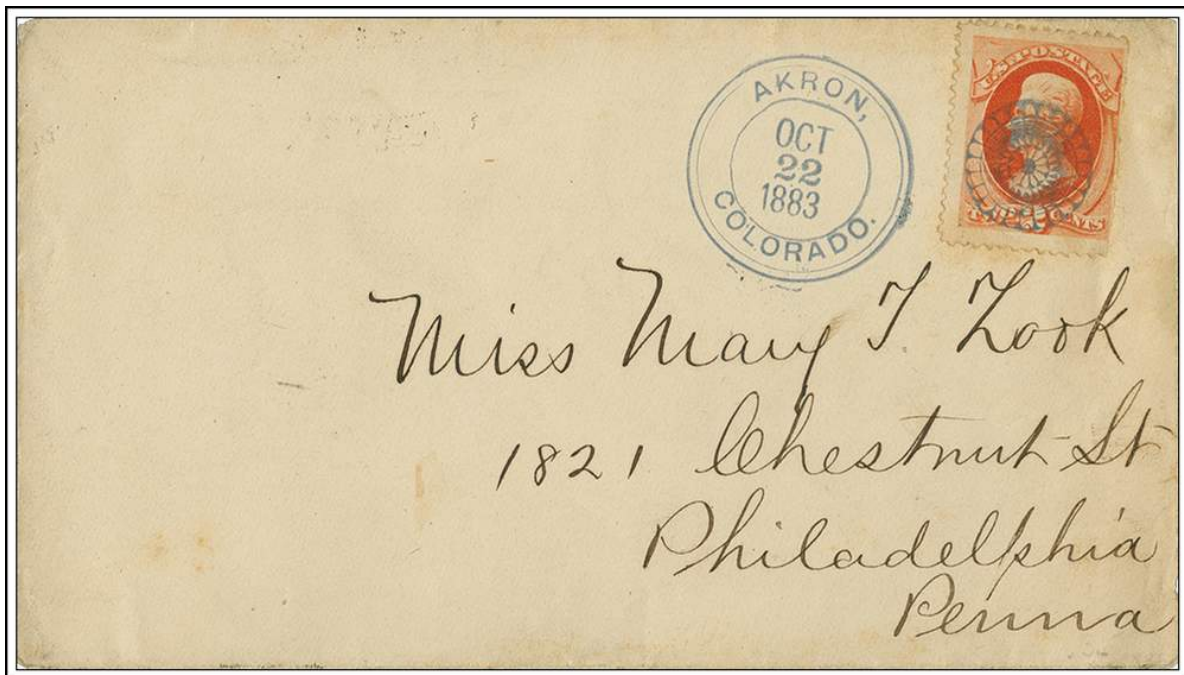 AKRON,
OCT
22
1883
COLORADO.
U.S. POSTAGE
TWO 2 CENTS
Miss Mary T. Zook
1821 Chestnut St
Philadelphia
Penna